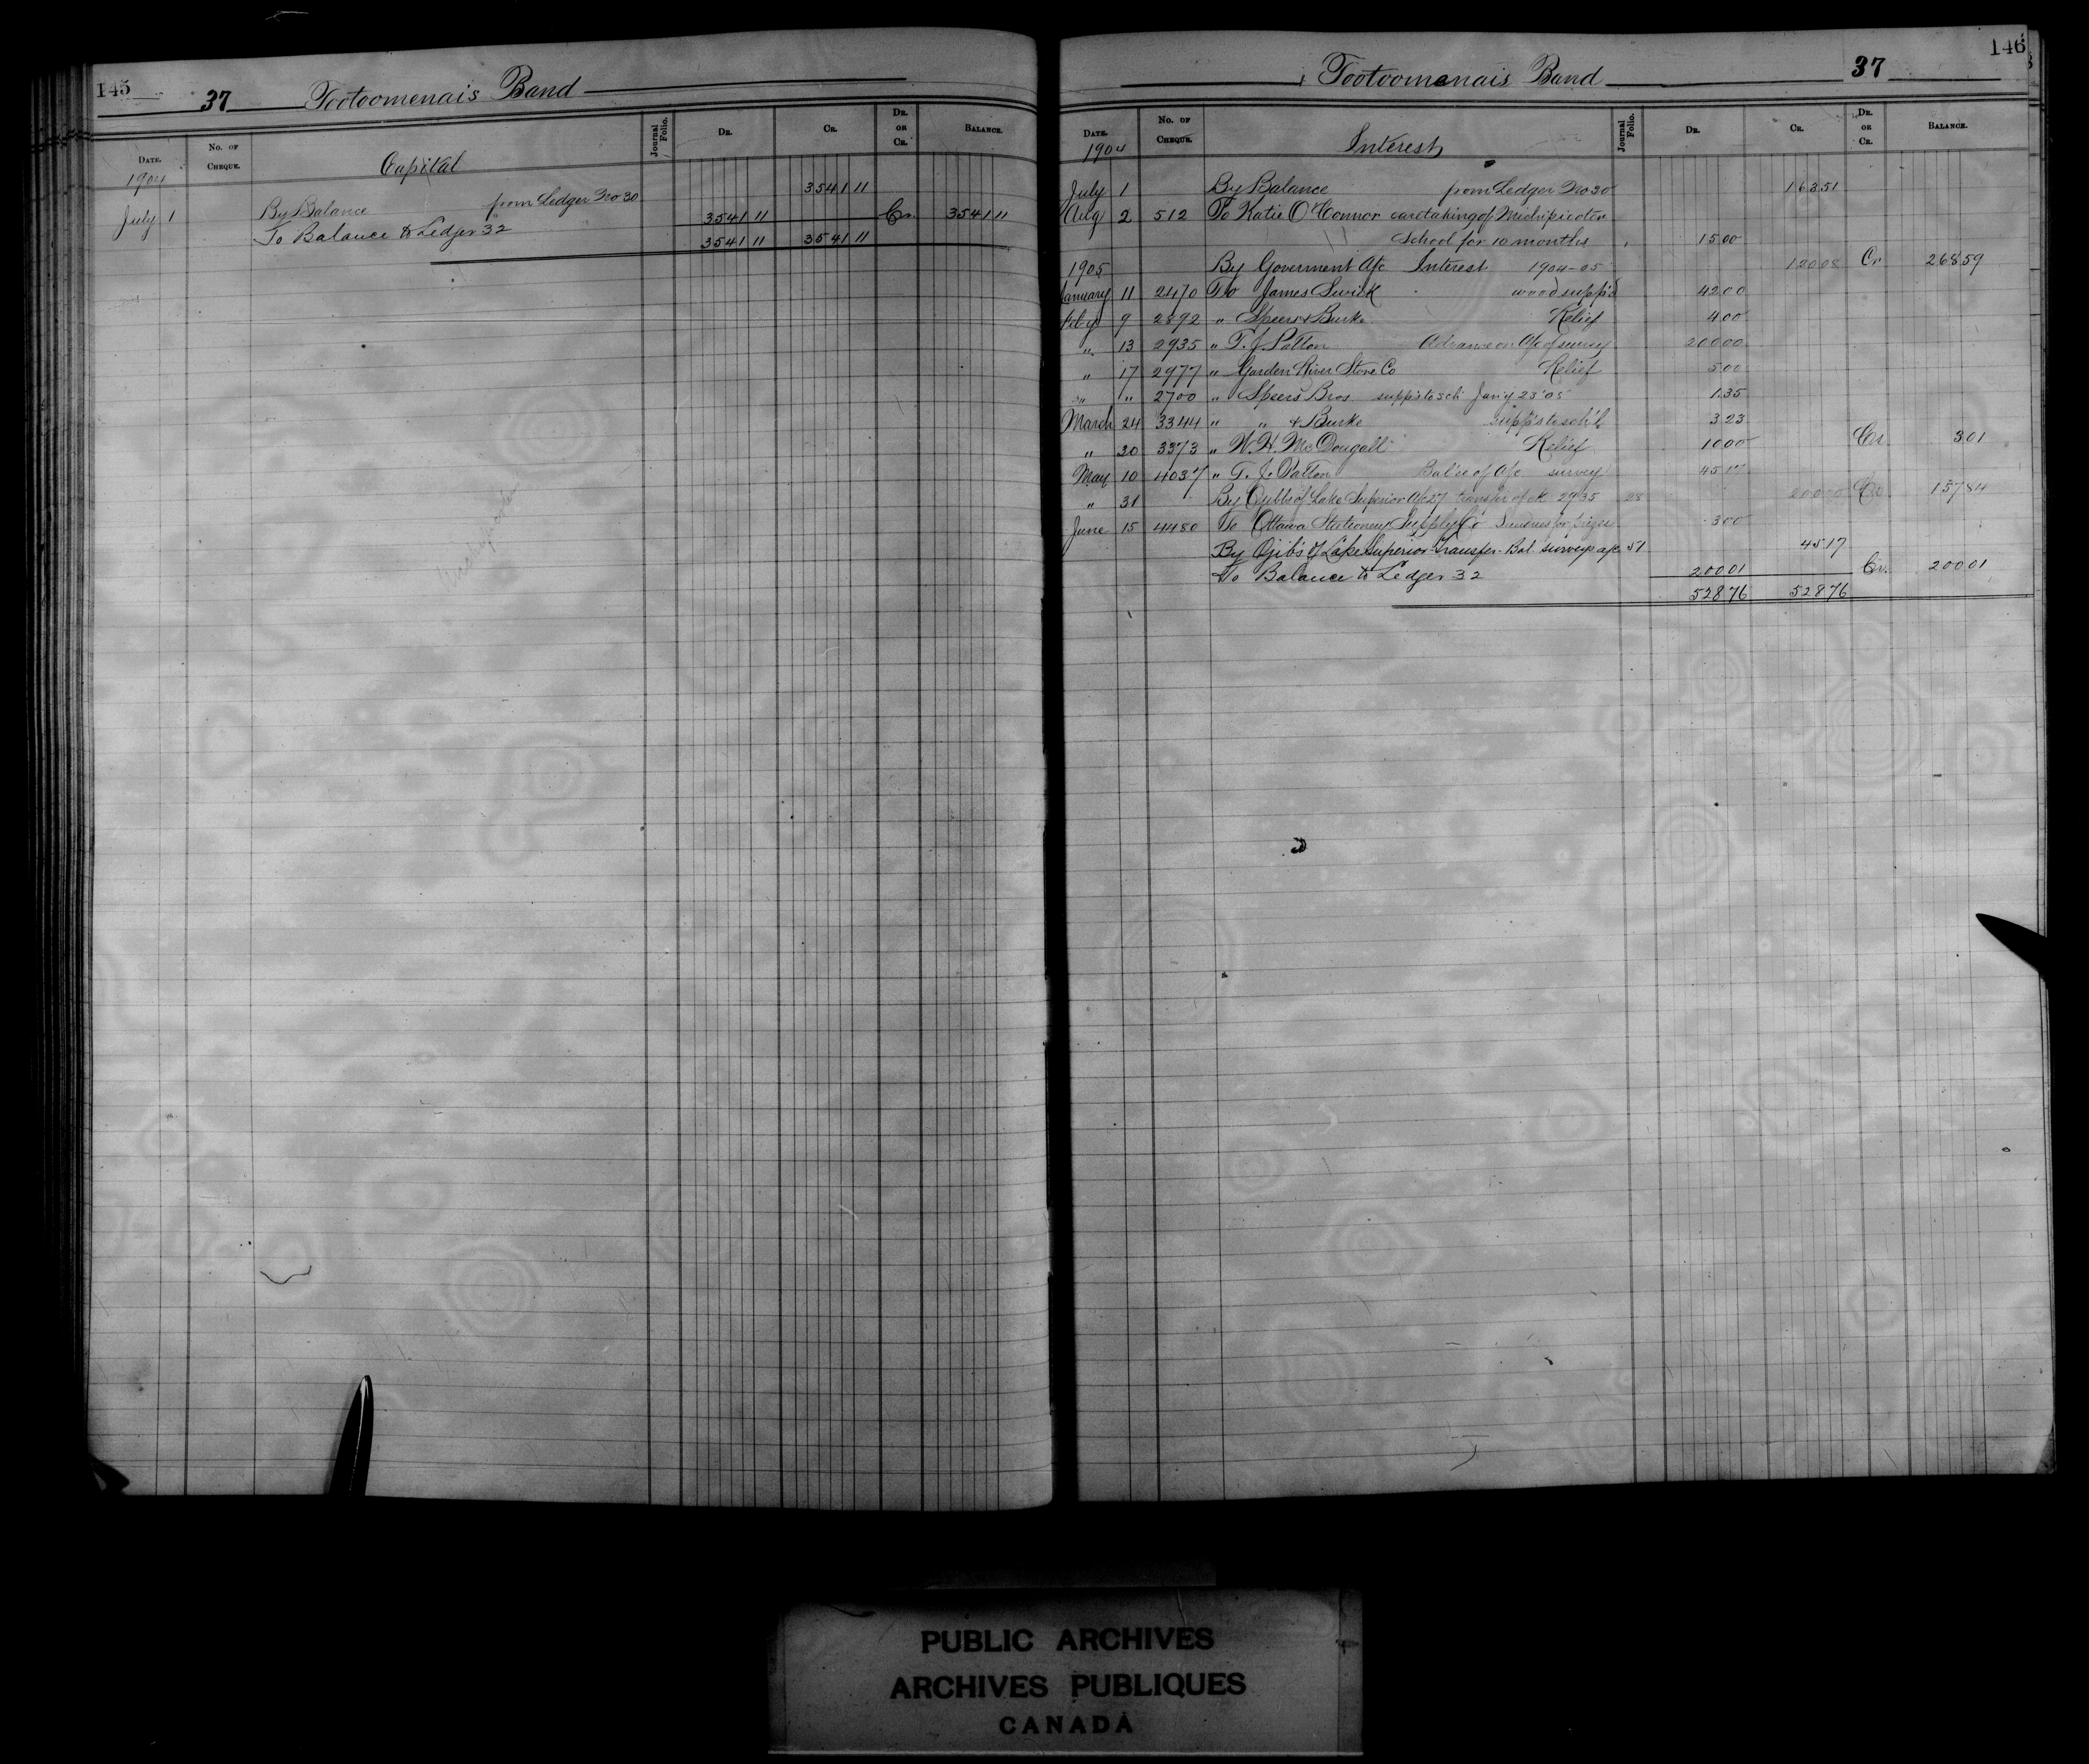 145
37 Tootoomenais Band
Date. No. of Cheque. Capital Journal Folio. Dr. Cr. Dr. or Cr. Balance.
1904
July 1 By Balance from Ledger No 30 3541 11
To Balance to Ledger 32 3541 11 Cr. 3541 11
3541 11 3541 11
146
Tootoomenais Band 37
Date. No. of Cheque. Interest Journal Folio. Dr. Cr. Dr. or Cr. Balance.
1904
July 1 By Balance from Ledger No 30 163 51
Aug 2 512 To Katie O'Connor caretaking of Michipicoten
School for 10 months 15 00
1905 By Goverment A/c Interest 1904-05 120 08 Cr 268 59
January 11 2470 To James Swick wood supp'd 42 00
Feb'y 9 2892 " Speers & Burke Relief 4 00
" 13 2935 " T. J. Patton Advance on A/c of survey 200 00
" 17 2977 " Garden River Store Co Relief 5 00
" " 2700 " Speers Bros supp's to sch Jan'y 23 '05 1 35
March 24 3344 " " & Burke supp's to sch'l 3 23
" 30 3373 " W. H. McDougall Relief 10 00 Cr. 3 01
May 10 4037 " T. J. Patton Bal'ce of A/c survey 45 17
" 31 By Ojibb's of Lake Superior A/c 27 transfer of ck 2935 28 200 00 Cr. 157 84
June 15 4480 To Ottawa Stationery Supply Co Sundries for prizes 3 00
By Ojib's of Lake Superior Transfer Bal. survey a/c 51 45 17
To Balance to Ledger 32 200 01 Cr. 200 01
528 76 528 76
PUBLIC ARCHIVES
ARCHIVES PUBLIQUES
CANADA